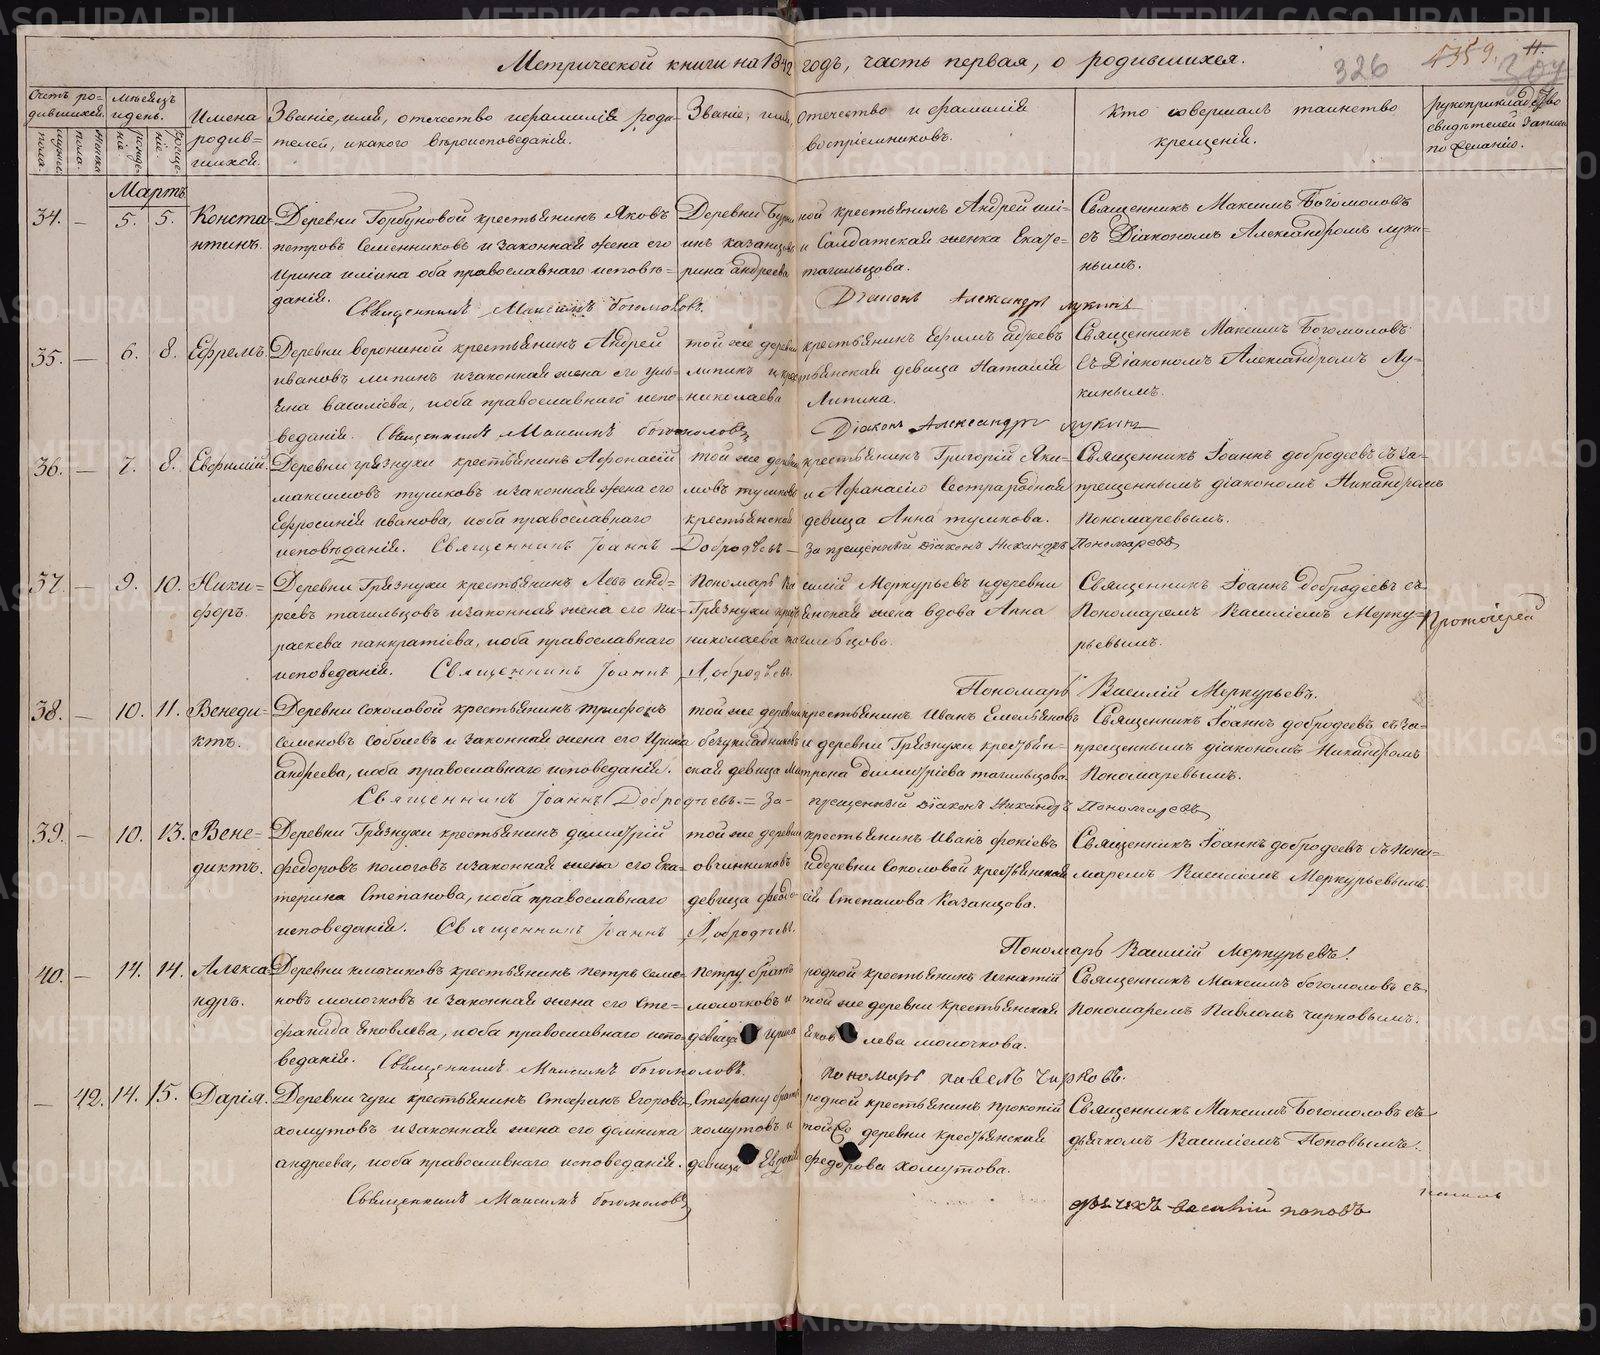 Метрической книги на 1842 годъ, часть первая, о родившихся.
326
Счетъ родившихся.
мужска пола.
женска пола.
Мѣсяцъ и день.
рожденія.
крещенія.
Имена родившихся.
Званіе, имя, отечество и фамилія родителей, и какого вѣроисповеданія.
Званіе, имя, отечество и фамилія воспріемниковъ.
Кто совершалъ таинство крещенія.
рукоприкладство свидѣтелей записи по желанію.
Мартъ
34. — 5. 5. Константинъ.
Деревни Горбуновой крестьянинъ Яковъ
петровъ Семенниковъ и законная жена его
Ирина иліина оба православнаго исповѣ-
данія. Священникъ Максимъ богомоловъ.
ной крестьянинъ Андрей
и Салдатская женка Екате-
рина андреева тагильцова.
Діаконъ Александръ лукинъ
Священникъ Максимъ Богомоловъ
съ Діакономъ Александромъ луки-
нымъ.
35. — 6. 8. Ефремъ.
Деревни Ворониной крестьянинъ Андрей
ивановъ липинъ и законная жена его уль-
яна василіева, иоба православнаго испо-
веданія. Священникъ Максимъ богомоловъ
той же деревни крестьянинъ Ефимъ
липинъ и крестьянская девица Наталія
николаева Липина.
Діаконъ Александръ лукинъ
Священникъ Максимъ Богомоловъ
съ Діакономъ Александромъ Лу-
кинымъ.
36. — 7. 8. Евфимій.
Деревни грязнухи крестьянинъ Афонасій
максимовъ тушковъ изаконная жена его
Ефросинія иванова, иоба православнаго
исповѣданія. Священникъ Іоаннъ Добродѣевъ —
той же деревни крестьянинъ Григорій Яки-
мовъ тушковъ и Афанасію Сестра родная
крестьянская девица Анна тушкова.
запрещенный діаконъ Никандръ Пономаревъ
Священникъ Іоаннъ добродеевъ съ за-
прещеннымъ діакономъ Никандромъ
Пономаревымъ.
37. — 9. 10. Ники-
форъ.
Деревни Грязнухи крестьянинъ Левъ анд-
реевъ тагильцовъ изаконная жена его Па-
раскева панкратіева, иоба православнаго
исповеданія. Священникъ Іоаннъ Добродѣевъ.
Пономарь Василій Меркурьевъ идеревни
Грязнухи крестьянская жена вдова Анна
николаева тагильцова.
Пономарь Василій Меркурьевъ.
Священникъ Іоаннъ Добродеевъ съ
Пономаремъ Василіемъ Мерку-
рьевымъ.
Протоіерей
38. — 10. 11. Венеди-
ктъ.
Деревни соколовой крестьянинъ трифонъ
семеновъ соболевъ и законная жена его Ирина
андреева, иоба православнаго исповеданія.
Священникъ Іоаннъ Добродѣевъ. = За-
прещенный діаконъ Никандръ Пономаревъ
той же деревни крестьянинъ Иванъ Емельяновъ
безукладниковъ и деревни Грязнухи крестьян-
ская девица Матрона димитріева тагильцова.
Священникъ Іоаннъ добродеевъ съ за-
прещеннымъ діакономъ Никандромъ
Пономаревымъ.
39. — 10. 13. Вене-
диктъ.
Деревни Грязнухи крестьянинъ димитрій
федоровъ пологовъ изаконная жена его Ека-
терина Степанова, иоба православнаго
исповеданія. Священникъ Іоаннъ Добродѣевъ.
той же деревни крестьянинъ Иванъ фокіевъ
овчинниковъ идеревни Соколовой крестьянская
девица Феодосія Степанова Казанцова.
Пономарь Василій Меркурьевъ.
Священникъ Іоаннъ добродеевъ съ поно-
маремъ Василіемъ Меркурьевымъ.
40. — 14. 14. Алекса-
ндръ.
Деревни ключиковъ крестьянинъ петръ семе-
новъ молочковъ и законная жена его Сте-
фанида яковлева, иоба православнаго испо-
веданія. Священникъ Максимъ богомоловъ.
Петру братъ родной крестьянинъ игнатій
молочковъ и той же деревни крестьянская
девица Ирина яковлева молочкова.
Пономарь павелъ Чирковъ.
Священникъ Максимъ богомоловъ съ
Пономаремъ Павломъ чирковымъ.
— 42. 14. 15. Дарія.
Деревни чуги крестьянинъ Стефанъ Егоровъ
хомутовъ изаконная жена его домника
андреева, иоба православнаго исповеданія.
Священникъ Максимъ богомоловъ
Стефану братъ родной крестьянинъ прокопій
хомутовъ и той же деревни крестьянская
девица федорова хомутова.
Священникъ Максимъ Богомоловъ съ
дьячкомъ Василіемъ Поповымъ.
дьячекъ василій поповъ
METRIKI.GASO-URAL.RU